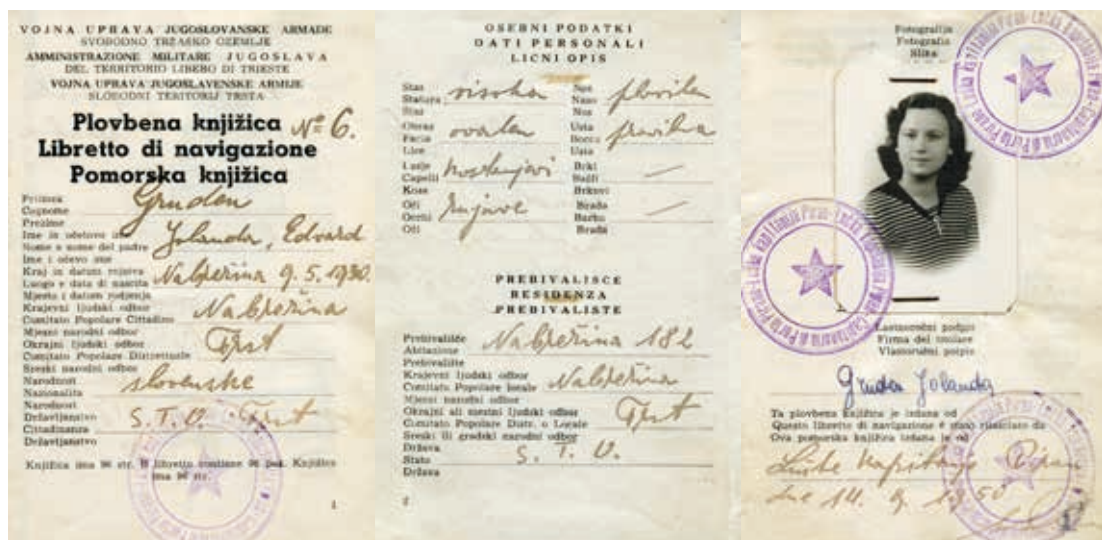 VOJNA UPRAVA JUGOSLOVANSKE ARMADE
SVOBODNO TRŽAŠKO OZEMLJE
AMMINISTRAZIONE MILITARE JUGOSLAVA
DEL TERRITORIO LIBERO DI TRIESTE
VOJNA UPRAVA JUGOSLAVENSKE ARMIJE
SLOBODNI TERITORIJ TRSTA
Plovbena knjižica Nº 6.
Libretto di navigazione
Pomorska knjižica
Priimek
Cognome Gruden
Prezime
Ime in očetovo ime
Nome e nome del padre Jolanda, Edvard
Ime i očevo ime
Kraj in datum rojstva
Luogo e data di nascita Nabrežina 9.5.1930.
Mjesto i datum rodjenja
Krajevni ljudski odbor
Comitato Popolare Cittadino Nabrežina
Mjesni narodni odbor
Okrajni ljudski odbor
Comitato Popolare Distrettuale Trst
Sreski narodni odbor
Narodnost
Nazionalità slovenske
Narodnost
Državljanstvo
Cittadinanza S.T.O. Trst
Državljanstvo
Knjižica ima 96 str. Il libretto contiene 96 pag. Knjižica
ima 96 str.
1
OSEBNI PODATKI
DATI PERSONALI
LICNI OPIS
Stas Nos
Statura visoka Naso
Stas Nos
Obraz Usta
Faccia ovalen Bocca pravilna
Lice Usta
Lasje Brki
Capelli kostanjevi Baffi —
Kosa Brkovi
Oči Brada
Occhi rujave Barba —
Oči Brada
PREBIVALISCE
RESIDENZA
PREBIVALISTE
Prebivališče
Abitazione Nabrežina 182
Prebivalište
Krajevni ljudski odbor
Comitato Popolare locale Nabrežina
Mjesni narodni odbor
Okrajni ali mestni ljudski odbor
Comitato Popolare Distr. o Locale Trst
Sreski ili gradski narodni odbor
Država
Stato S. T. O.
Država
2
Fotografija
Fotografia
Slika
Lastnoročni podpis
Firma del titolare
Vlastoručni potpis
Gruden Jolanda
Ta plovbena knjižica je izdana od
Questo libretto di navigazione è stato rilasciato da
Ova pomorska knjižica izdana je od
Luške kapitanije Piran
dne 14. 9. 1950